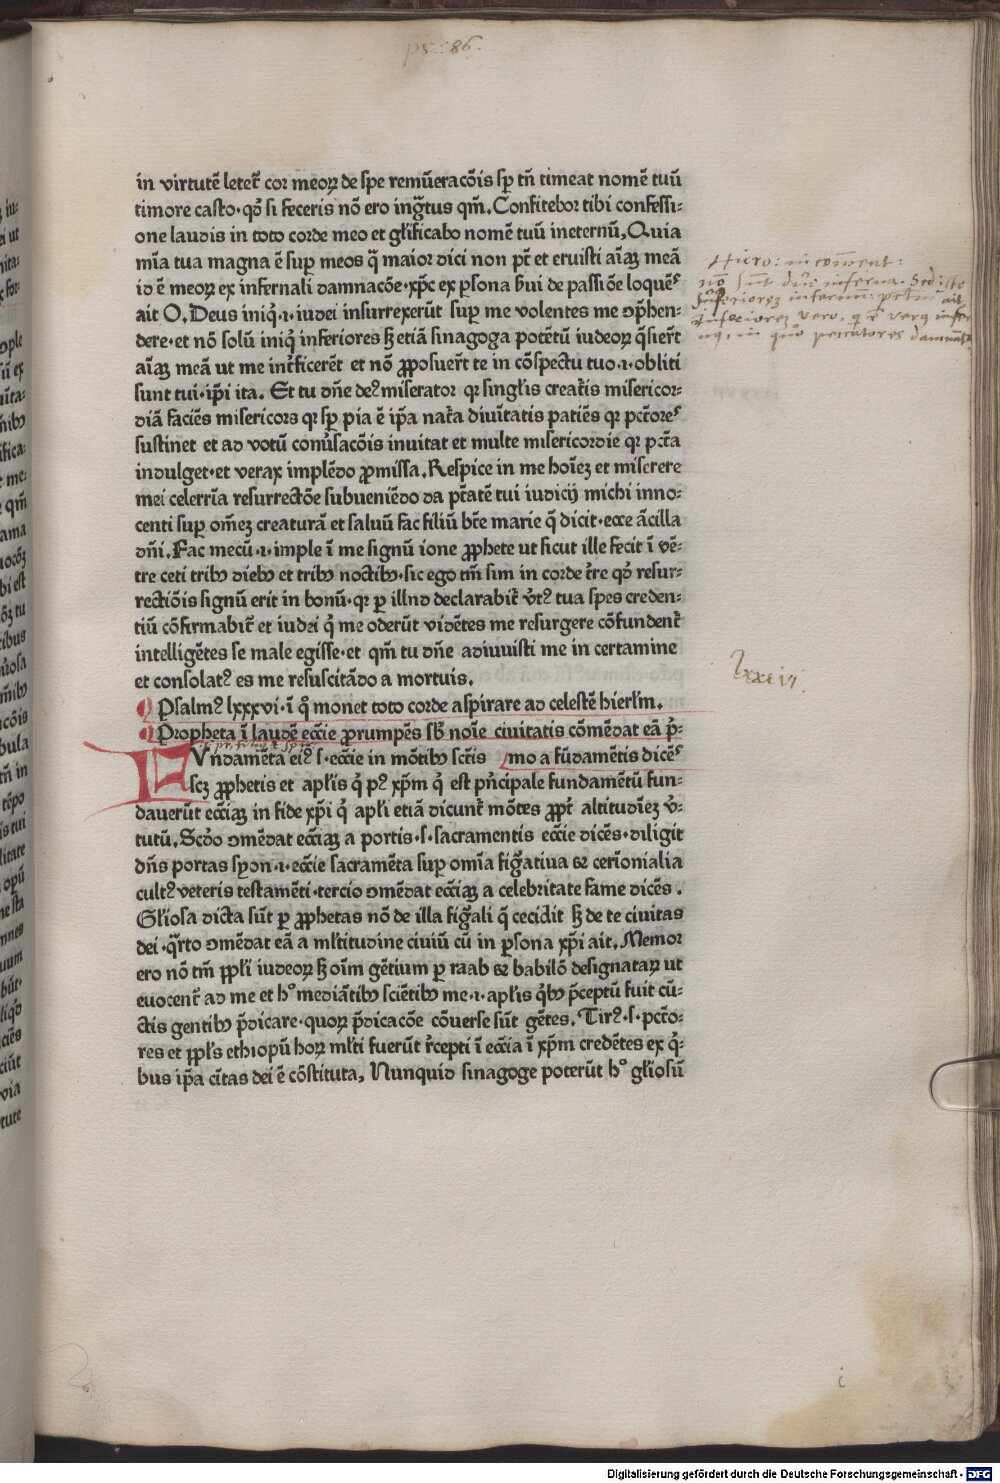 ps. 86.
in virtutē letet̄ cor meoꝝ de spe remūeracōis sꝑ tn̄ timeat nomē tuū
timore casto·qđ si feceris nō ero ingͣtus qm̄. Confitebor tibi confessi:
one laudis in toto corde meo et gl̄ificabo nomē tuū ineternū, Quia
mīa tua magna ē suꝑ meos q̄ maior dici non pt̄ et eruisti aīaꝫ meā
id ē meoꝝ ex infernali damnacōe·xp̄c ex ꝑsona sui de passiōe loquēˢ
ait O. Deus iniqͥ·ı·iudei insurrexerūt suꝑ me volentes me ꝯp̄hen:
dere·et nō solū iniqͥ inferiores sꝫ etiā sinagoga potētū iudeoꝝ q̄siert̄
aīaꝫ meā ut me int̄ficerēt et nō ꝓposuert̄ te in cōspectu tuo·ı·obliti
sunt tui·ip̄i ita. Et tu dn̄e deꝰ miserator qꝛ singl̄is creat̄is misericor:
diā faciēs misericors qꝛ sꝑ pia ē ip̄a nat̄a diuītatis patiēs qꝛ pctōreˢ
sustinet et ad votū conūsacōis inuitat et multe misericordie qꝛ pctā
indulget·et verax implēdo ꝓmissa. Respice in me hoīeꝫ et miserere
mei celerrīa resurrectōe subueniēdo da pt̄atē tui iudicij michi inno:
centi suꝑ om̄eꝫ creaturā et saluū fac filiū bt̄e marie q̄ dicit·ecce ācilla
dn̄i. Fac mecū·ı·imple ī me signū ione ꝓphete ut sicut ille fecit ī vē:
tre ceti tribꝰ diebꝰ et tribꝰ noctibꝰ·sic ego tm̄ sim in corde tr̄e qđ resur:
rectiōis signū erit in bonū·qꝛ ꝑ illud declarabit̄ v̄tꝰ tua spes creden:
tiū cōfirmabit̄ et iudei qͥ me oderūt vidētes me resurgere cōfundent̄
intelligētes se male egisse·et qm̄ tu dn̄e adiuuisti me in certamine
et consolatꝰ es me resuscitādo a mortuis.
Psalmꝰ lxxxvi·ī q̄ monet toto corde aspirare ad celestē hierl̄m.
Propheta ī laudē ecc̄ie ꝓrumpēs sb̄ noīe ciuitatis cōmēdat eā p̄:
Vndamēta eiꝰ s·ecc̄ie in mōtibꝰ sctīs mo a fūdamētis dicēˢ
scꝫ ꝓphetis et apl̄is qͥ pꝰ xp̄m qͥ est pn̄cipale fundamētū fun:
dauerūt ecc̄iaꝫ in fide xp̄i qͥ apl̄i etiā dicunt̄ mōtes ꝓpt̄ altitudīeꝫ v̄:
tutū. Scđo ꝯmēdat ecc̄iaꝫ a portis·s·sacramentis ecc̄ie dicēs·diligit
dn̄s portas syon·ı·ecc̄ie sacramēta suꝑ omīa figͣtiua et cerīonialia
cultꝰ veteris testamēti·tercio ꝯmēdat ecc̄iaꝫ a celebritate fame dicēs.
Gl̄iosa dicta sūt ꝑ ꝓphetas nō de illa figͣli q̄ cecidit sꝫ de te ciuitas
dei·qͣrto ꝯmēdat eā a ml̄titudine ciuiū cū in ꝑsona xp̄i ait. Memor
ero nō tm̄ ppl̄i iudeoꝝ sꝫ oīm gētium ꝑ raab et babilō designataꝝ ut
euocent̄ ad me et hͦ mediātibꝰ sciētibꝰ me·ı·apl̄is qͥbꝰ p̄ceptū fuit cū:
ctis gentibꝰ p̄dicare·quoꝝ p̄dicacōe cōuerse sūt gētes. Tirꝰ·s·pctō:
res et ppl̄s ethiopū hoꝝ ml̄ti fuerūt r̄cepti ī ecc̄ia ī xp̄m credētes ex qͥ:
bus ip̄a cītas dei ē cōstituta, Nunquid sinagoge poterūt hͦ gl̄iosū
Hiero: in com̄ent:
nō sūt duo inferna. Sed iste
inferioreꝫ infernū: ait
inferioreꝫ vero.
in quo peccatores damnāt
lxxxvi.
Digitalisierung gefördert durch die Deutsche Forschungsgemeinschaft - DFG